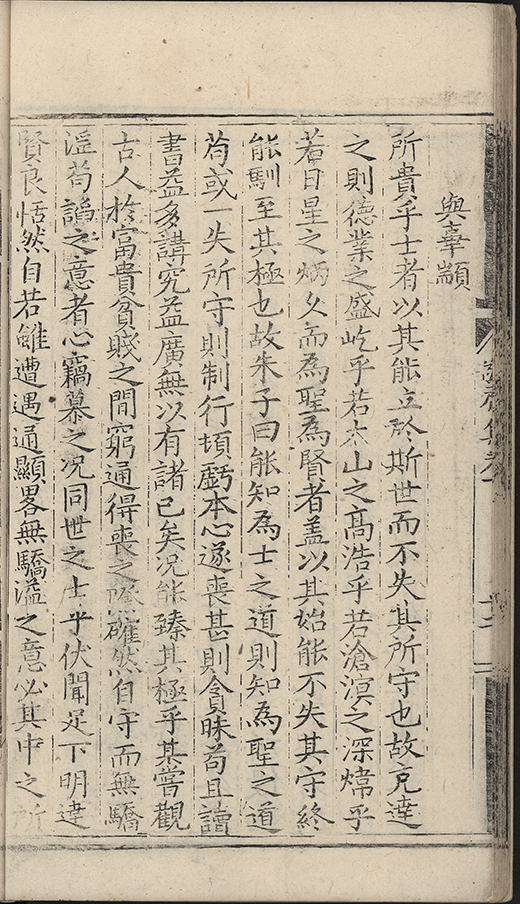 與辜顓
所貴乎士者以其能立於斯世而不失其所守也故充達
之則德業之盛屹乎若太山之高浩乎若滄溟之深煒乎
若日星之炳夕而為聖為賢者盖以其始能不失其守終
能馴至其極也故朱子曰能知為士之道則知為聖之道
苟或一失所守則制行頓虧本心遂喪甚則貪昧苟且讀
書益多講究益廣無以有諸己矣况能臻其極乎某嘗觀
古人於富貴貧賤之間窮通得喪之際確然自守而無驕
溢苟諂之意者心竊慕之况同世之士乎伏聞足下明達
賢良恬然自若雖遭遇通顯畧無驕溢之意必其中之所